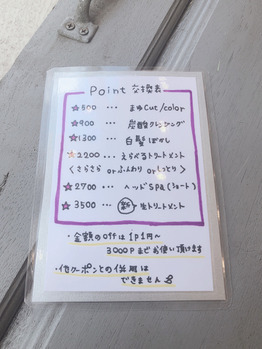 Point 交換表
☆500 ... まゆcut/color
☆900 ... 炭酸クレンジング
☆1300 ... 白髪ぼかし
☆2200 ... えらべるトリートメント
(さらさら orふんわり orしっとり)
☆2700 ... ヘッドSPA(ショート)
☆3500 ... 髪質 生トリートメント
・金額のoffは1p1円〜
3000Pまでお使い頂けます
・他クーポンとの併用は
できません